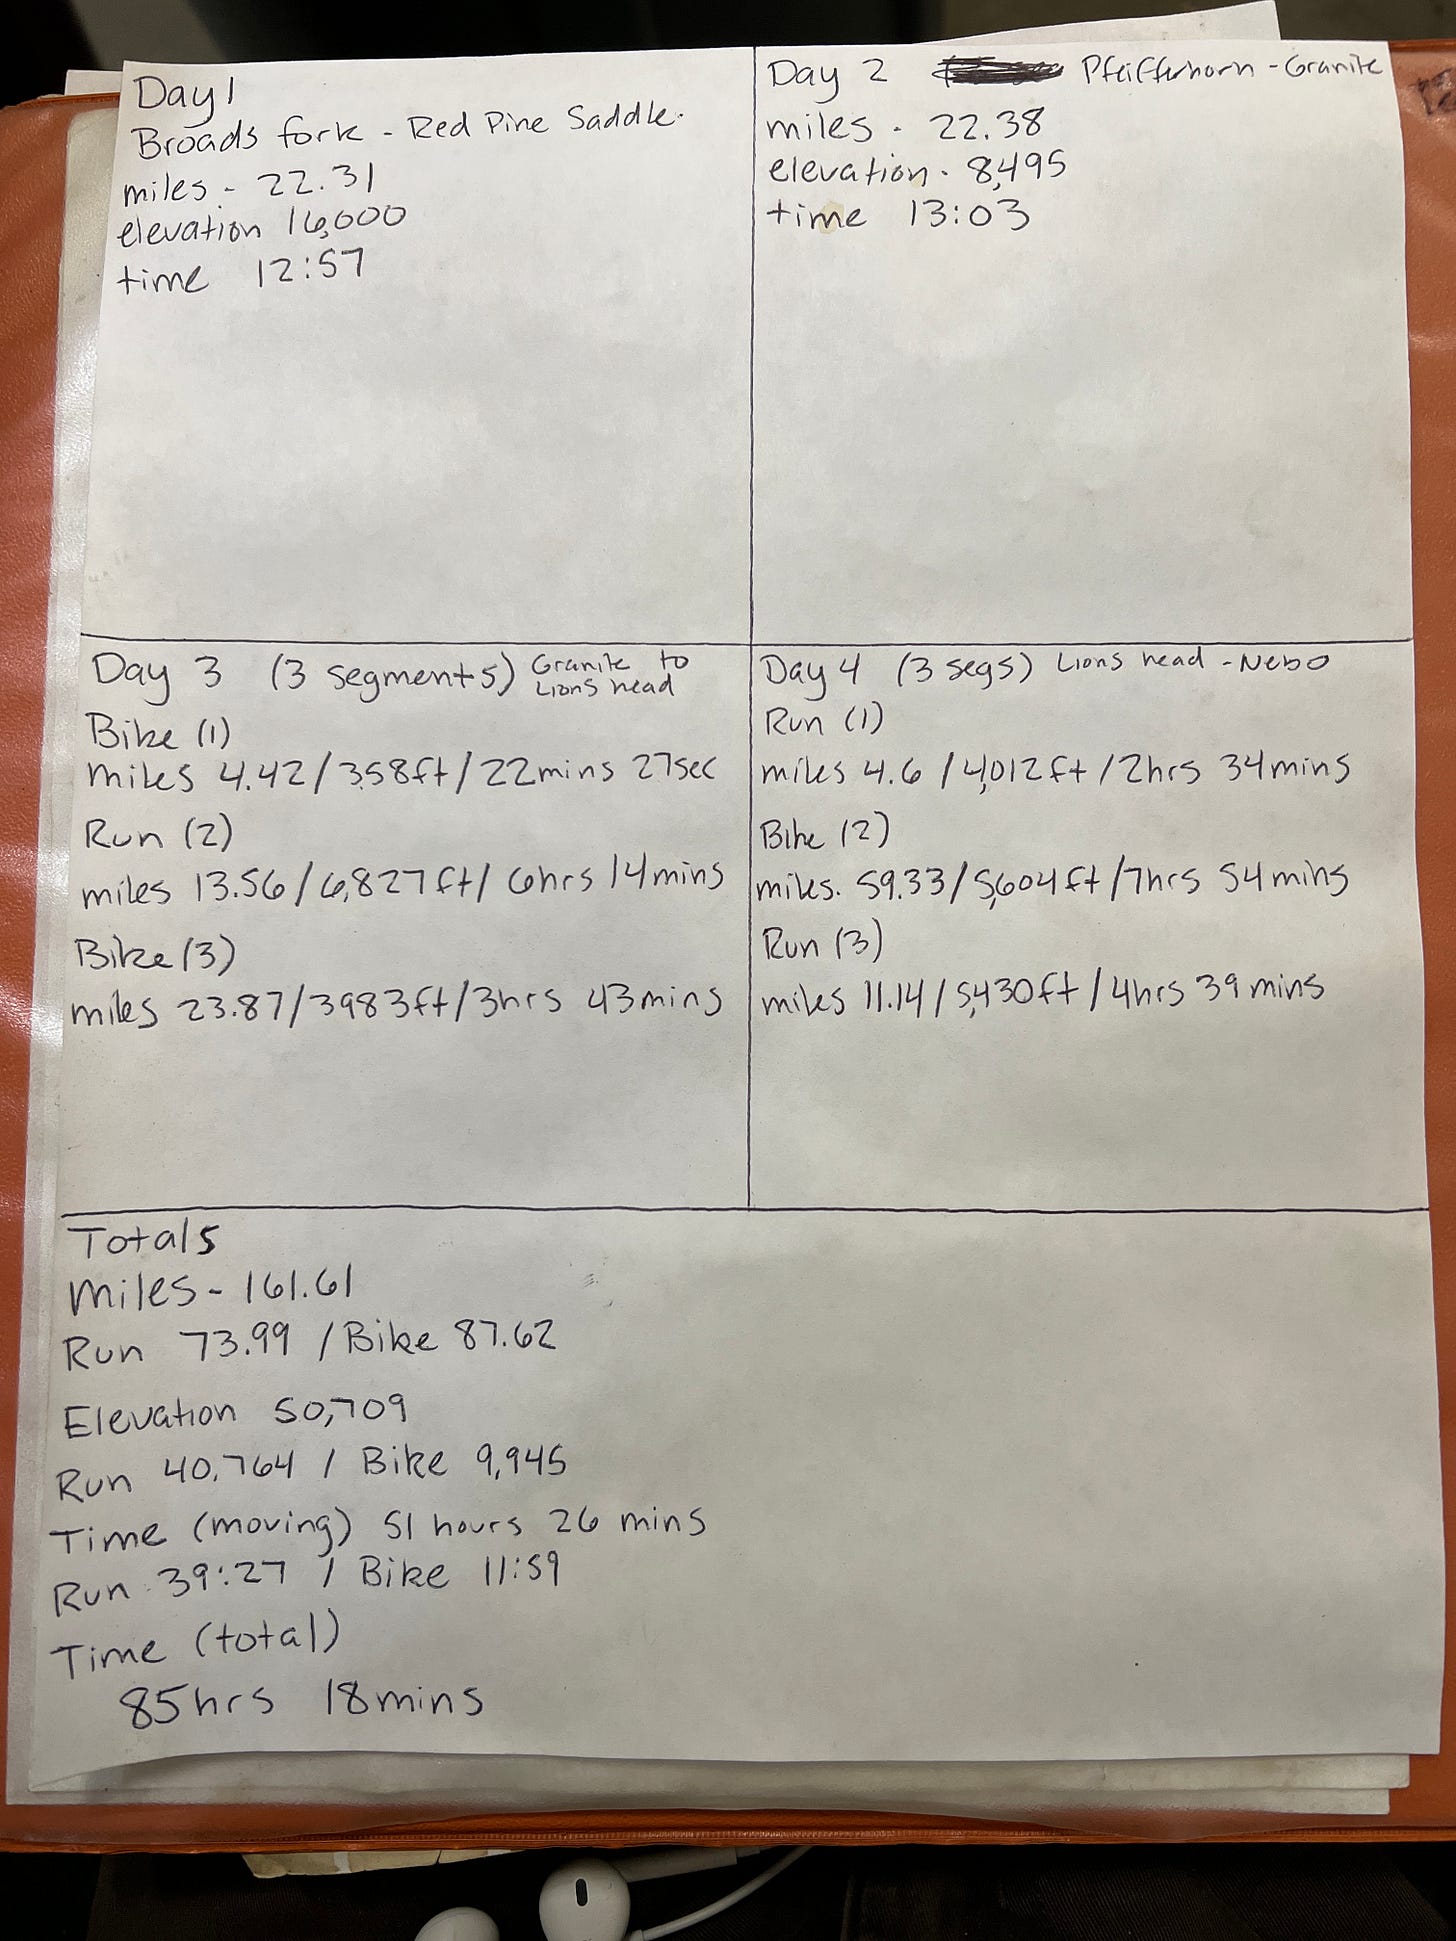 Day 1
Broads fork - Red Pine Saddle.
miles - 22.31
elevation 16,000
time 12:57
Day 2 Pfeifferhorn - Granite
miles - 22.38
elevation - 8,495
time 13:03
Day 3 (3 segments) Granite to
Lions head
Bike (1)
miles 4.42/358ft/22mins 27sec
Run (2)
miles 13.56/6,827ft/6hrs 14mins
Bike (3)
miles 23.87/3983ft/3hrs 43mins
Day 4 (3 segs) Lions head - Nebo
Run (1)
miles 4.6/4,012ft/2hrs 34mins
Bike (2)
miles. 59.33/5,604ft/7hrs 54mins
Run (3)
miles 11.14/5,430ft/4hrs 39mins
Totals
Miles - 161.61
Run 73.99 / Bike 87.62
Elevation 50,709
Run 40,764 / Bike 9,945
Time (moving) 51 hours 26 mins
Run 39:27 / Bike 11:59
Time (total)
85hrs 18mins